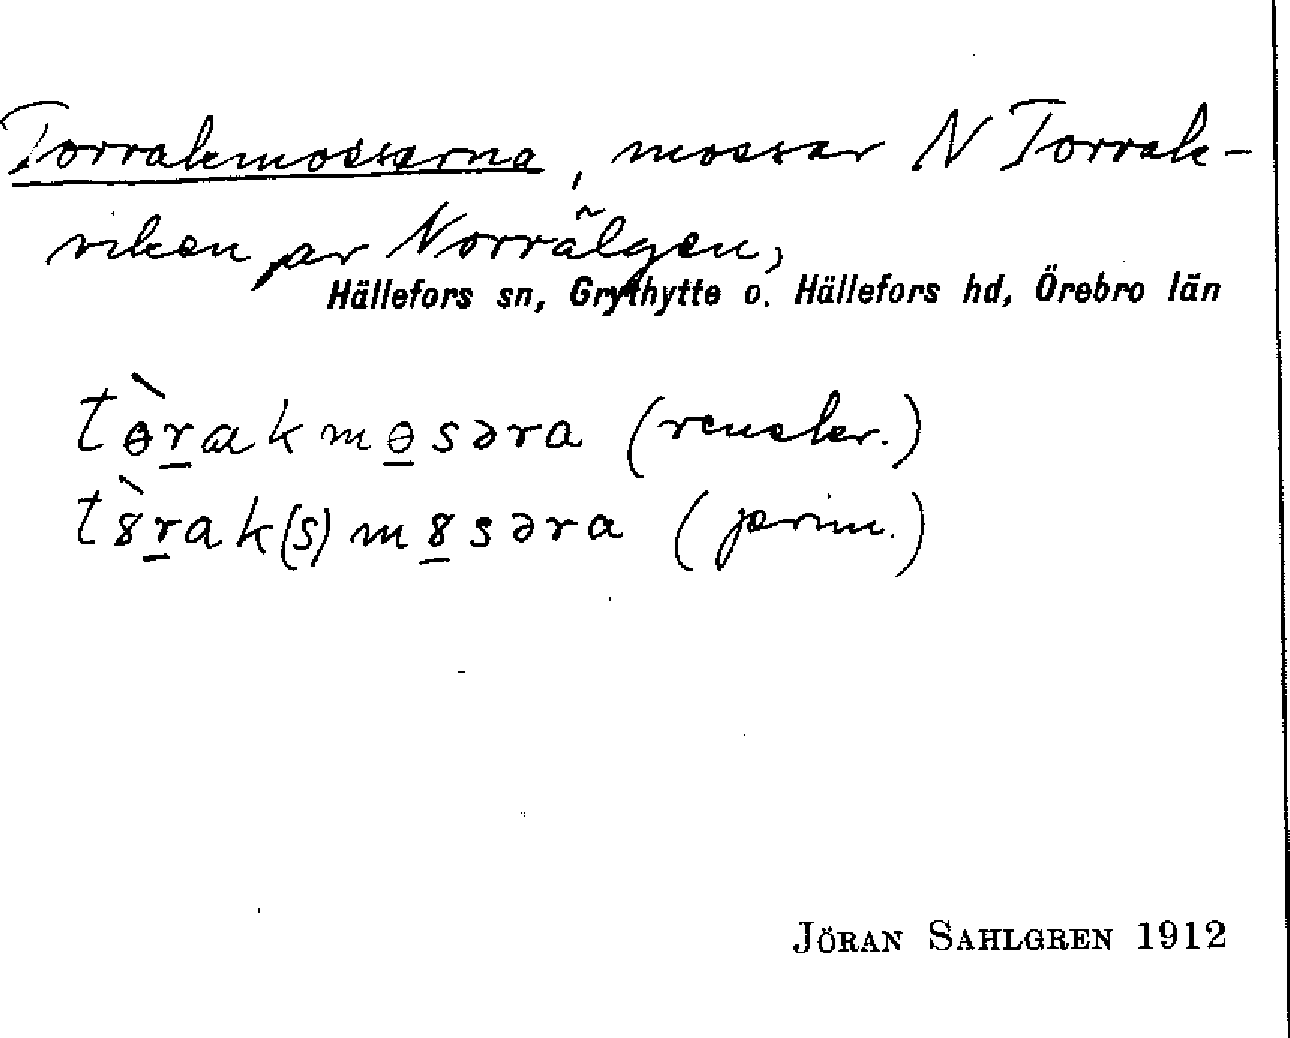 Torrakmossarna, mossar N Torrak-
viken av Norrälgen,
Hällefors sn, Grythytte o. Hällefors hd, Örebro län
tɵ̀r̲akmɵ̲səra (renskr.)
t8̀r̲ak(s)m8̲səra (prim.)
JÖRAN SAHLGREN 1912